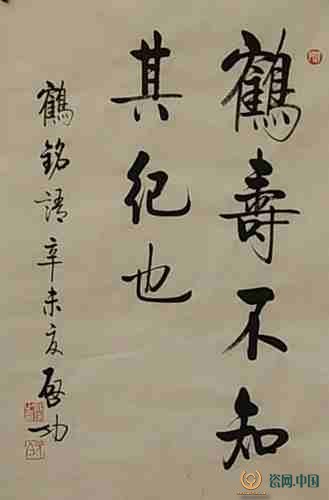 鶴壽不知
其紀也
鶴銘語辛未夏啓功
瓷网.中国